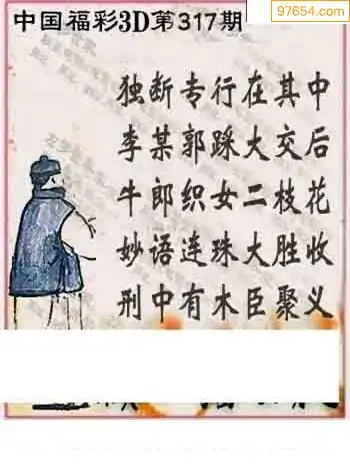 97654.com
中国福彩3D第317期
独断专行在其中
李某郭踩大交后
牛郎织女二枝花
妙语连珠大胜收
刑中有木臣聚义